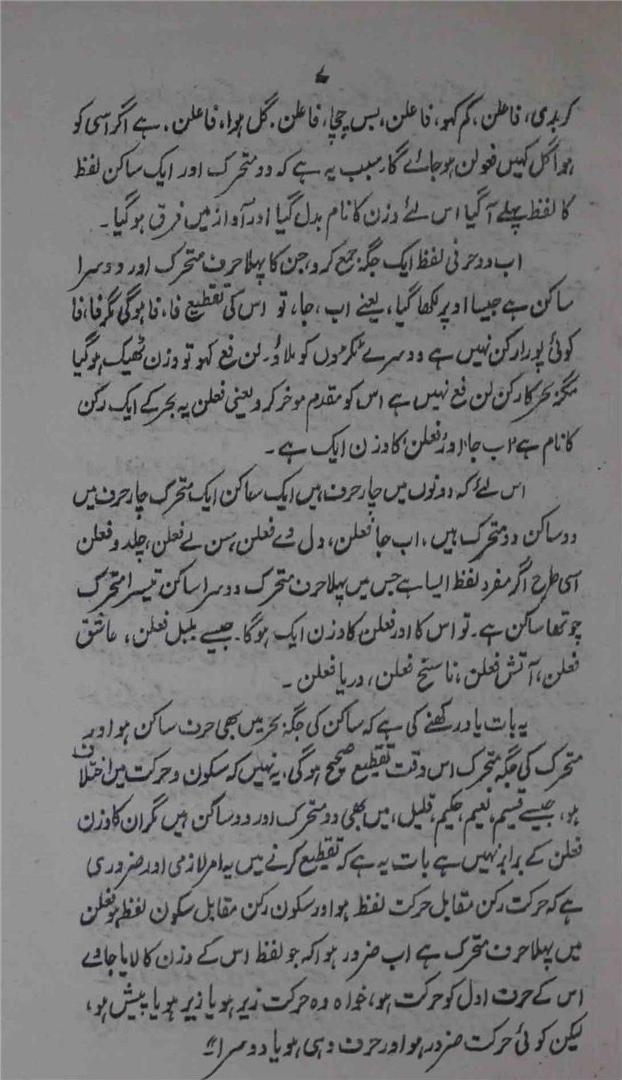 ۷
کر بدی، فاعلن، کم کہو، فاعلن، بس چچا، فاعلن. گل ہوا، فاعلن. ہے اگر اسی کو
ہوا گل کہیں فعولن ہو جائے گا۔ سبب یہ ہے کہ دو متحرک اور ایک ساکن لفظ
کا لفظ پہلے آ گیا اس لئے وزن کا نام بدل گیا اور آواز میں فرق ہو گیا۔
اب دو حرفی لفظ ایک جگہ جمع کرو، جن کا پہلا حرف متحرک اور دوسرا
ساکن ہے جیسا اوپر لکھا گیا، یعنے اب، جا، تو اس کی تقطیع فا، فا ہوگی مگر فا، فا
کوئی پورا رکن نہیں ہے دوسرے ٹکڑوں کو ملاؤ۔ لن فع کہو تو وزن ٹھیک ہو گیا
مگر بحر کا رکن لن فع نہیں ہے اس کو مقدم موخر کرو یعنی فعلن یہ بحر کے ایک رکن
کا نام ہے 'اب جا' اور 'فعلن' کا وزن ایک ہے۔
اس لئے کہ دونوں میں چار حرف ہیں ایک ساکن ایک متحرک چار حرف میں
دو ساکن دو متحرک ہیں، اب جا فعلن، دل دے فعلن، سن لے فعلن، چلدو فعلن
اسی طرح اگر مفرد لفظ ایسا ہے جس میں پہلا حرف متحرک دوسرا ساکن تیسرا متحرک
چوتھا ساکن ہے۔ تو اس کا اور فعلن کا وزن ایک ہوگا۔ جیسے بلبل فعلن، عاشق
فعلن، آتش فعلن، ناسخ فعلن، دریا فعلن۔
یہ بات یاد رکھنے کی ہے کہ ساکن کی جگہ بحر میں بھی حرف ساکن ہو اور
متحرک کی جگہ متحرک اس وقت تقطیع صحیح ہوگی، یہ نہیں کہ سکون و حرکت میں اختلاف
ہو، جیسے قسیم، نعیم، حکیم، قلیل، میں بھی دو متحرک اور دو ساکن ہیں مگر ان کا وزن
فعلن کے برابر نہیں ہے بات یہ ہے کہ تقطیع کرنے میں یہ امر لازمی اور ضروری
ہے کہ حرکت رکن مقابل حرکت لفظ ہو اور سکون رکن مقابل سکون لفظ ہو فعلن
میں پہلا حرف متحرک ہے اب ضرور ہوا کہ جو لفظ اس کے وزن کا لایا جاوے
اس کے حرف اول کو حرکت ہو، خواہ وہ حرکت زبر ہو یا زیر ہو یا پیش ہو،
لیکن کوئی حرکت ضرور ہو اور حرف وہی ہو یا دوسرا "